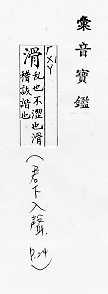 彙音寶鑑
滑
亂也不澀也滑
稽詼諧也
(君下入聲, P.24)